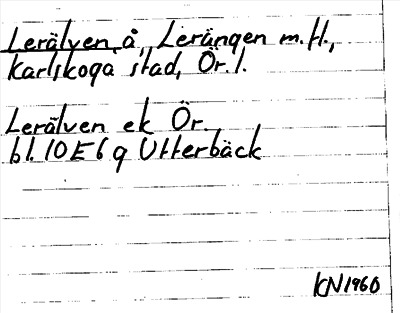 Lerälven, å, Lerängen m.fl.,
Karlskoga stad, Ör. l.
Lerälven ek Ör.
bl. 10 E 6 g Utterbäck
KN 1960